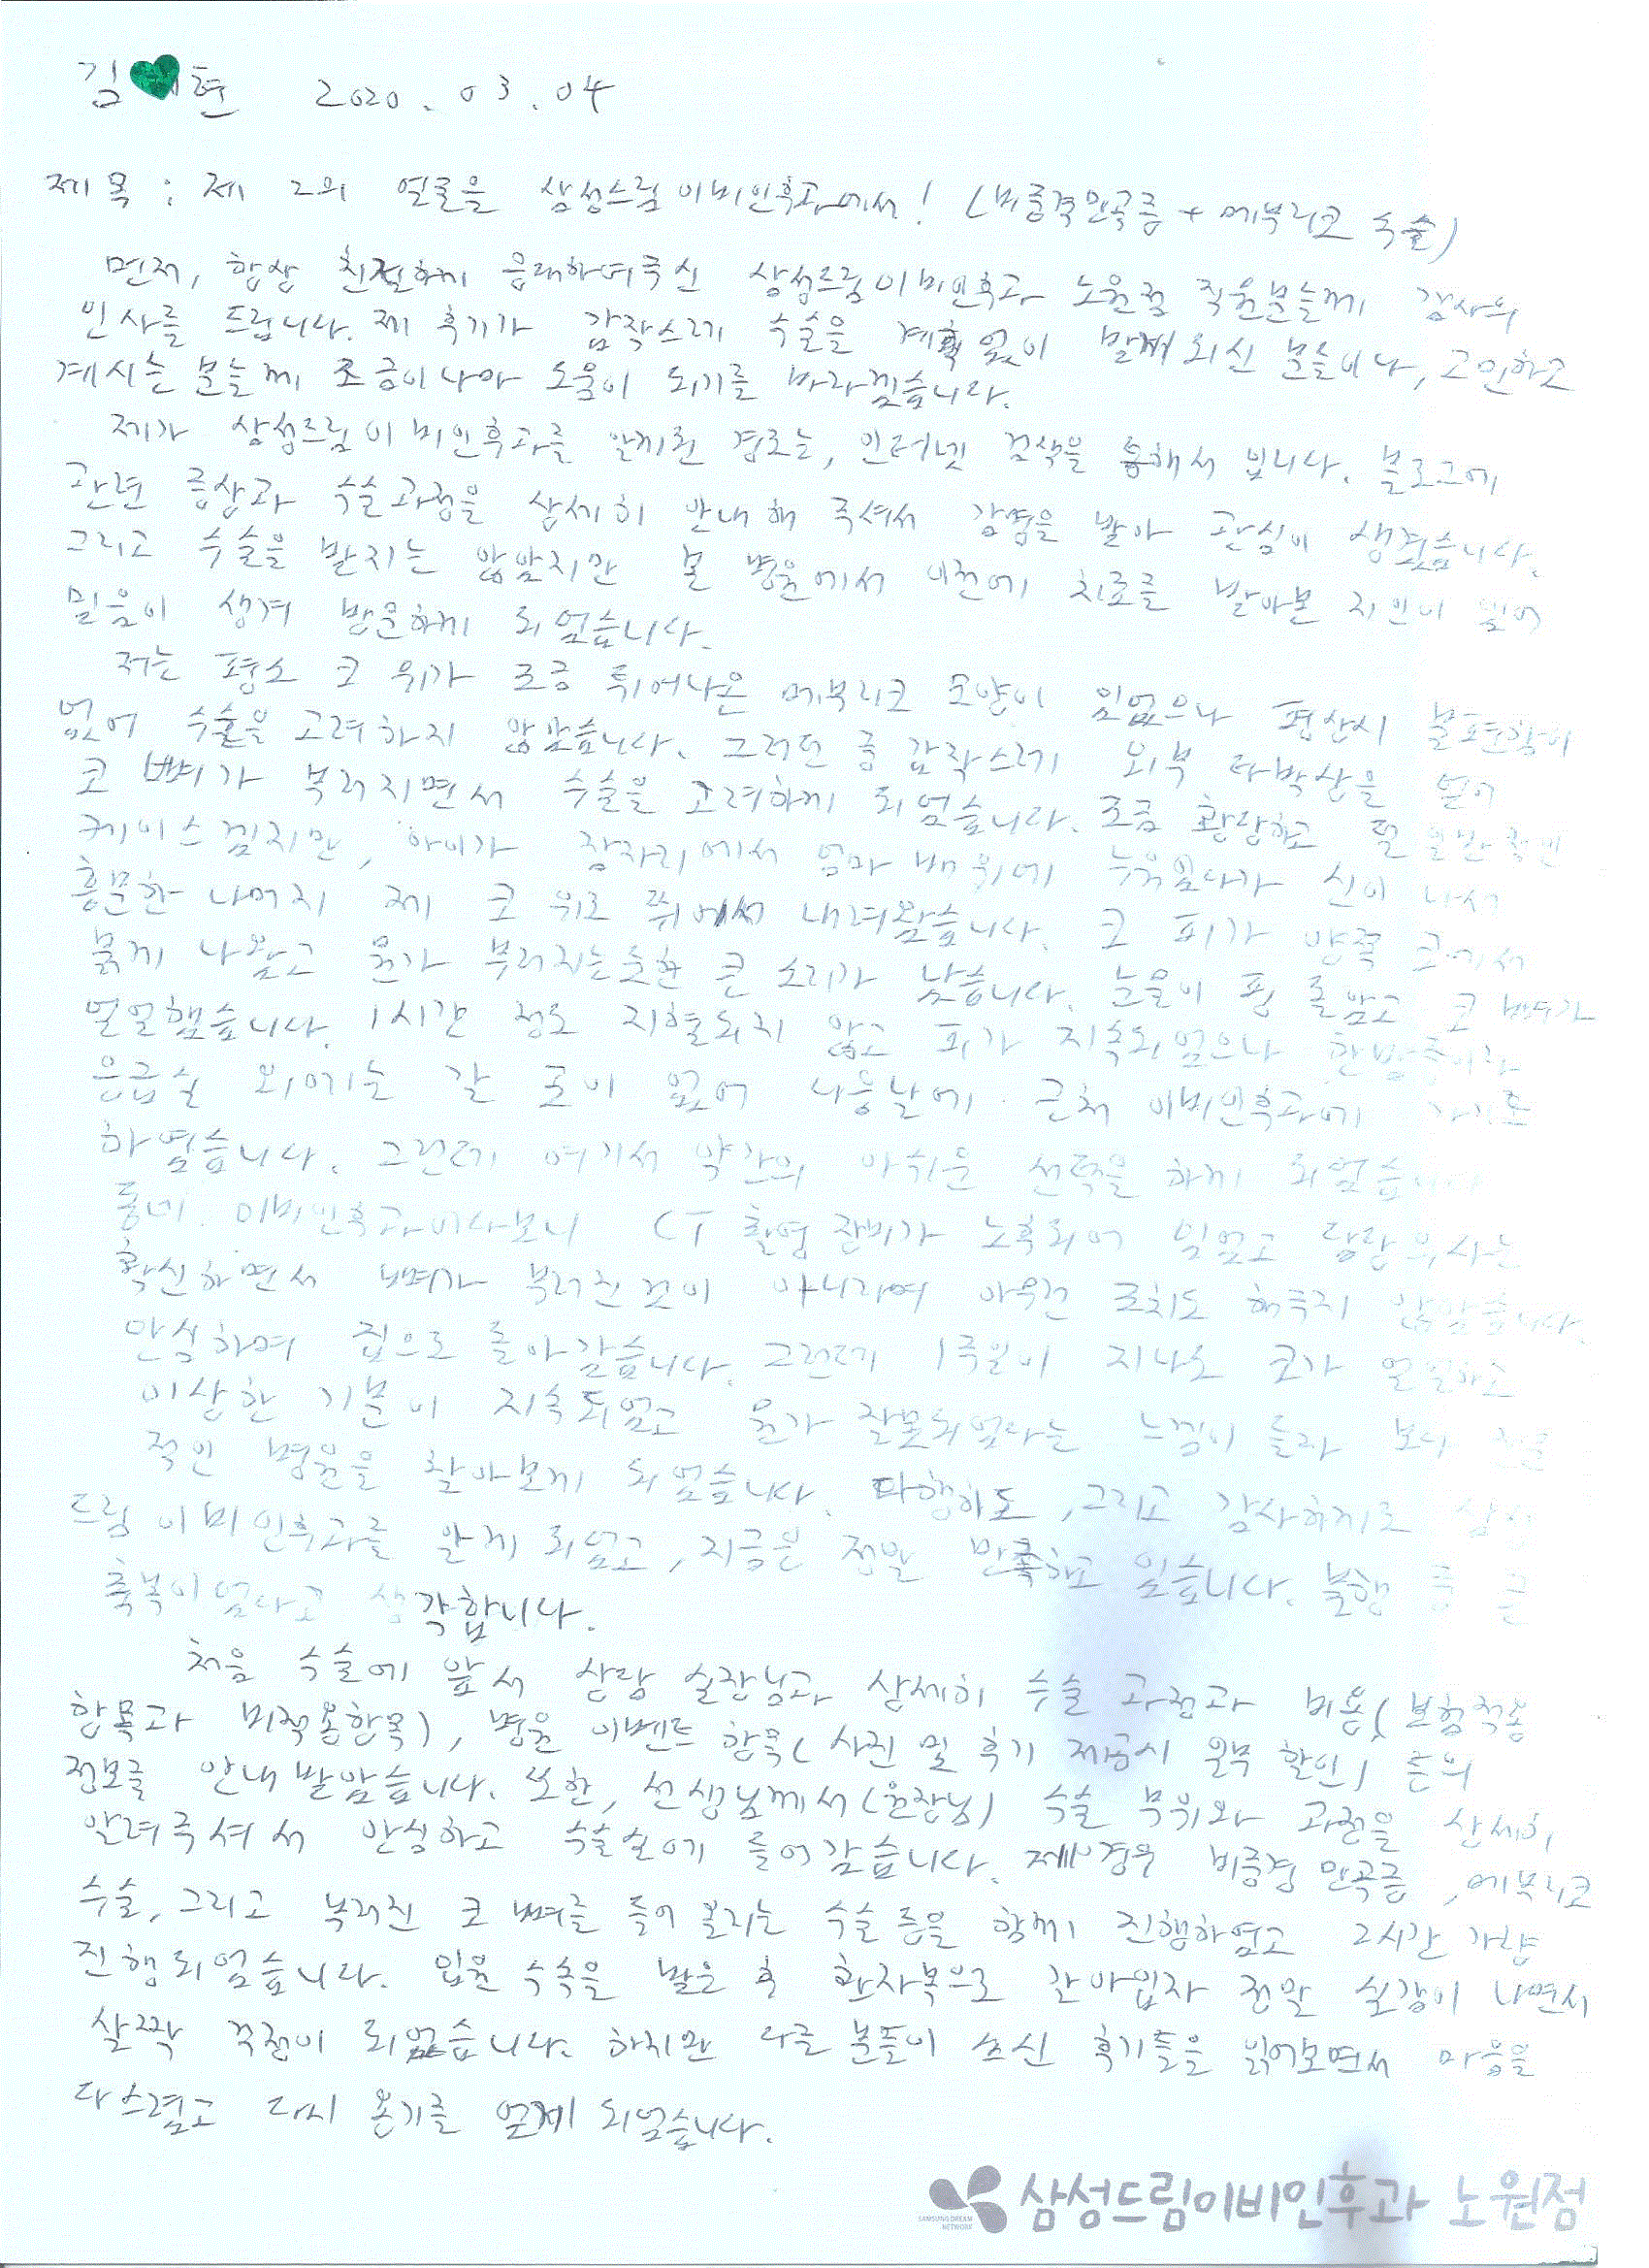 김 현 2020.03.04
제목 : 제 2의 얼굴을 삼성드림이비인후과에서! (비중격만곡증 + 메부리코 수술)
먼저, 항상 친절하게 응대하여주신 삼성드림이비인후과 노원점 직원분들께 감사의
인사를 드립니다. 제 후기가 갑작스레 수술을 계획없이 받게되신 분들이나, 고민하고
계시는 분들께 조금이나마 도움이 되기를 바라겠습니다.
제가 삼성드림이비인후과를 알게된 경로는, 인터넷 검색을 통해서 입니다. 블로그에
관련 증상과 수술과정을 상세히 안내해 주셔서 감명을 받아 관심이 생겼습니다.
그리고 수술을 받지는 않았지만 본 병원에서 이전에 치료를 받아본 지인이 있어
믿음이 생겨 방문하게 되었습니다.
저는 평소 코 위가 조금 튀어나온 메부리코 모양이 있었으나 평상시 불편함이
없어 수술을 고려하지 않았습니다. 그러던 중 갑작스레 외부 타박상을 얻어
코 뼈가 부러지면서 수술을 고려하게 되었습니다. 조금 황당하고 덜 일반적인
케이스겠지만, 아이가 잠자리에서 엄마 배 위에 누워있다가 신이 나서
흥분한 나머지 제 코 위로 뛰어서 내려왔습니다. 코 피가 양쪽 코에서
붉게 나왔고 뭔가 부러지는듯한 큰 소리가 났습니다. 눈물이 핑 돌았고 코 뼈가
얼얼했습니다. 1시간 정도 지혈되지 않고 피가 지속되었으나 한밤중이라
응급실 외에는 갈 곳이 없어 다음날에 근처 이비인후과에 가기로
하였습니다. 그런데 여기서 약간의 아쉬운 선택을 하게 되었습니다
동네 이비인후과이다보니 CT 촬영 장비가 노후되어 있었고 담당 의사는
확신하면서 뼈가 부러진 것이 아니라며 아무런 조치도 해주지 않았습니다.
안심하며 집으로 돌아갔습니다. 그런데 1주일이 지나도 코가 얼얼하고
이상한 기분이 지속되었고 뭔가 잘못되었다는 느낌이 들자 보다 전문
적인 병원을 찾아보게 되었습니다. 다행히도, 그리고 감사하게도 삼성
드림이비인후과를 알게 되었고, 지금은 정말 만족하고 있습니다. 불행 중 큰
축복이었다고 생각합니다.
처음 수술에 앞서 상담 실장님과 상세히 수술 과정과 비용(보험적용
항목과 비적용항목), 병원 이벤트 항목(사진 및 후기 제공시 일부 할인) 등의
정보를 안내 받았습니다. 또한, 선생님께서(원장님) 수술 부위와 과정을 상세히
알려주셔서 안심하고 수술실에 들어갔습니다. 제 경우 비중격 만곡증, 메부리코
수술, 그리고 부러진 코 뼈를 들어 올리는 수술 등을 함께 진행하였고 2시간 가량
진행되었습니다. 입원 수속을 밟은 후 환자복으로 갈아입자 정말 실감이 나면서
살짝 걱정이 되었습니다. 하지만 다른 분들이 쓰신 후기들을 읽어보면서 마음을
다스렸고 다시 용기를 얻게 되었습니다.
SAMSUNG DREAM NETWORK 삼성드림이비인후과 노원점